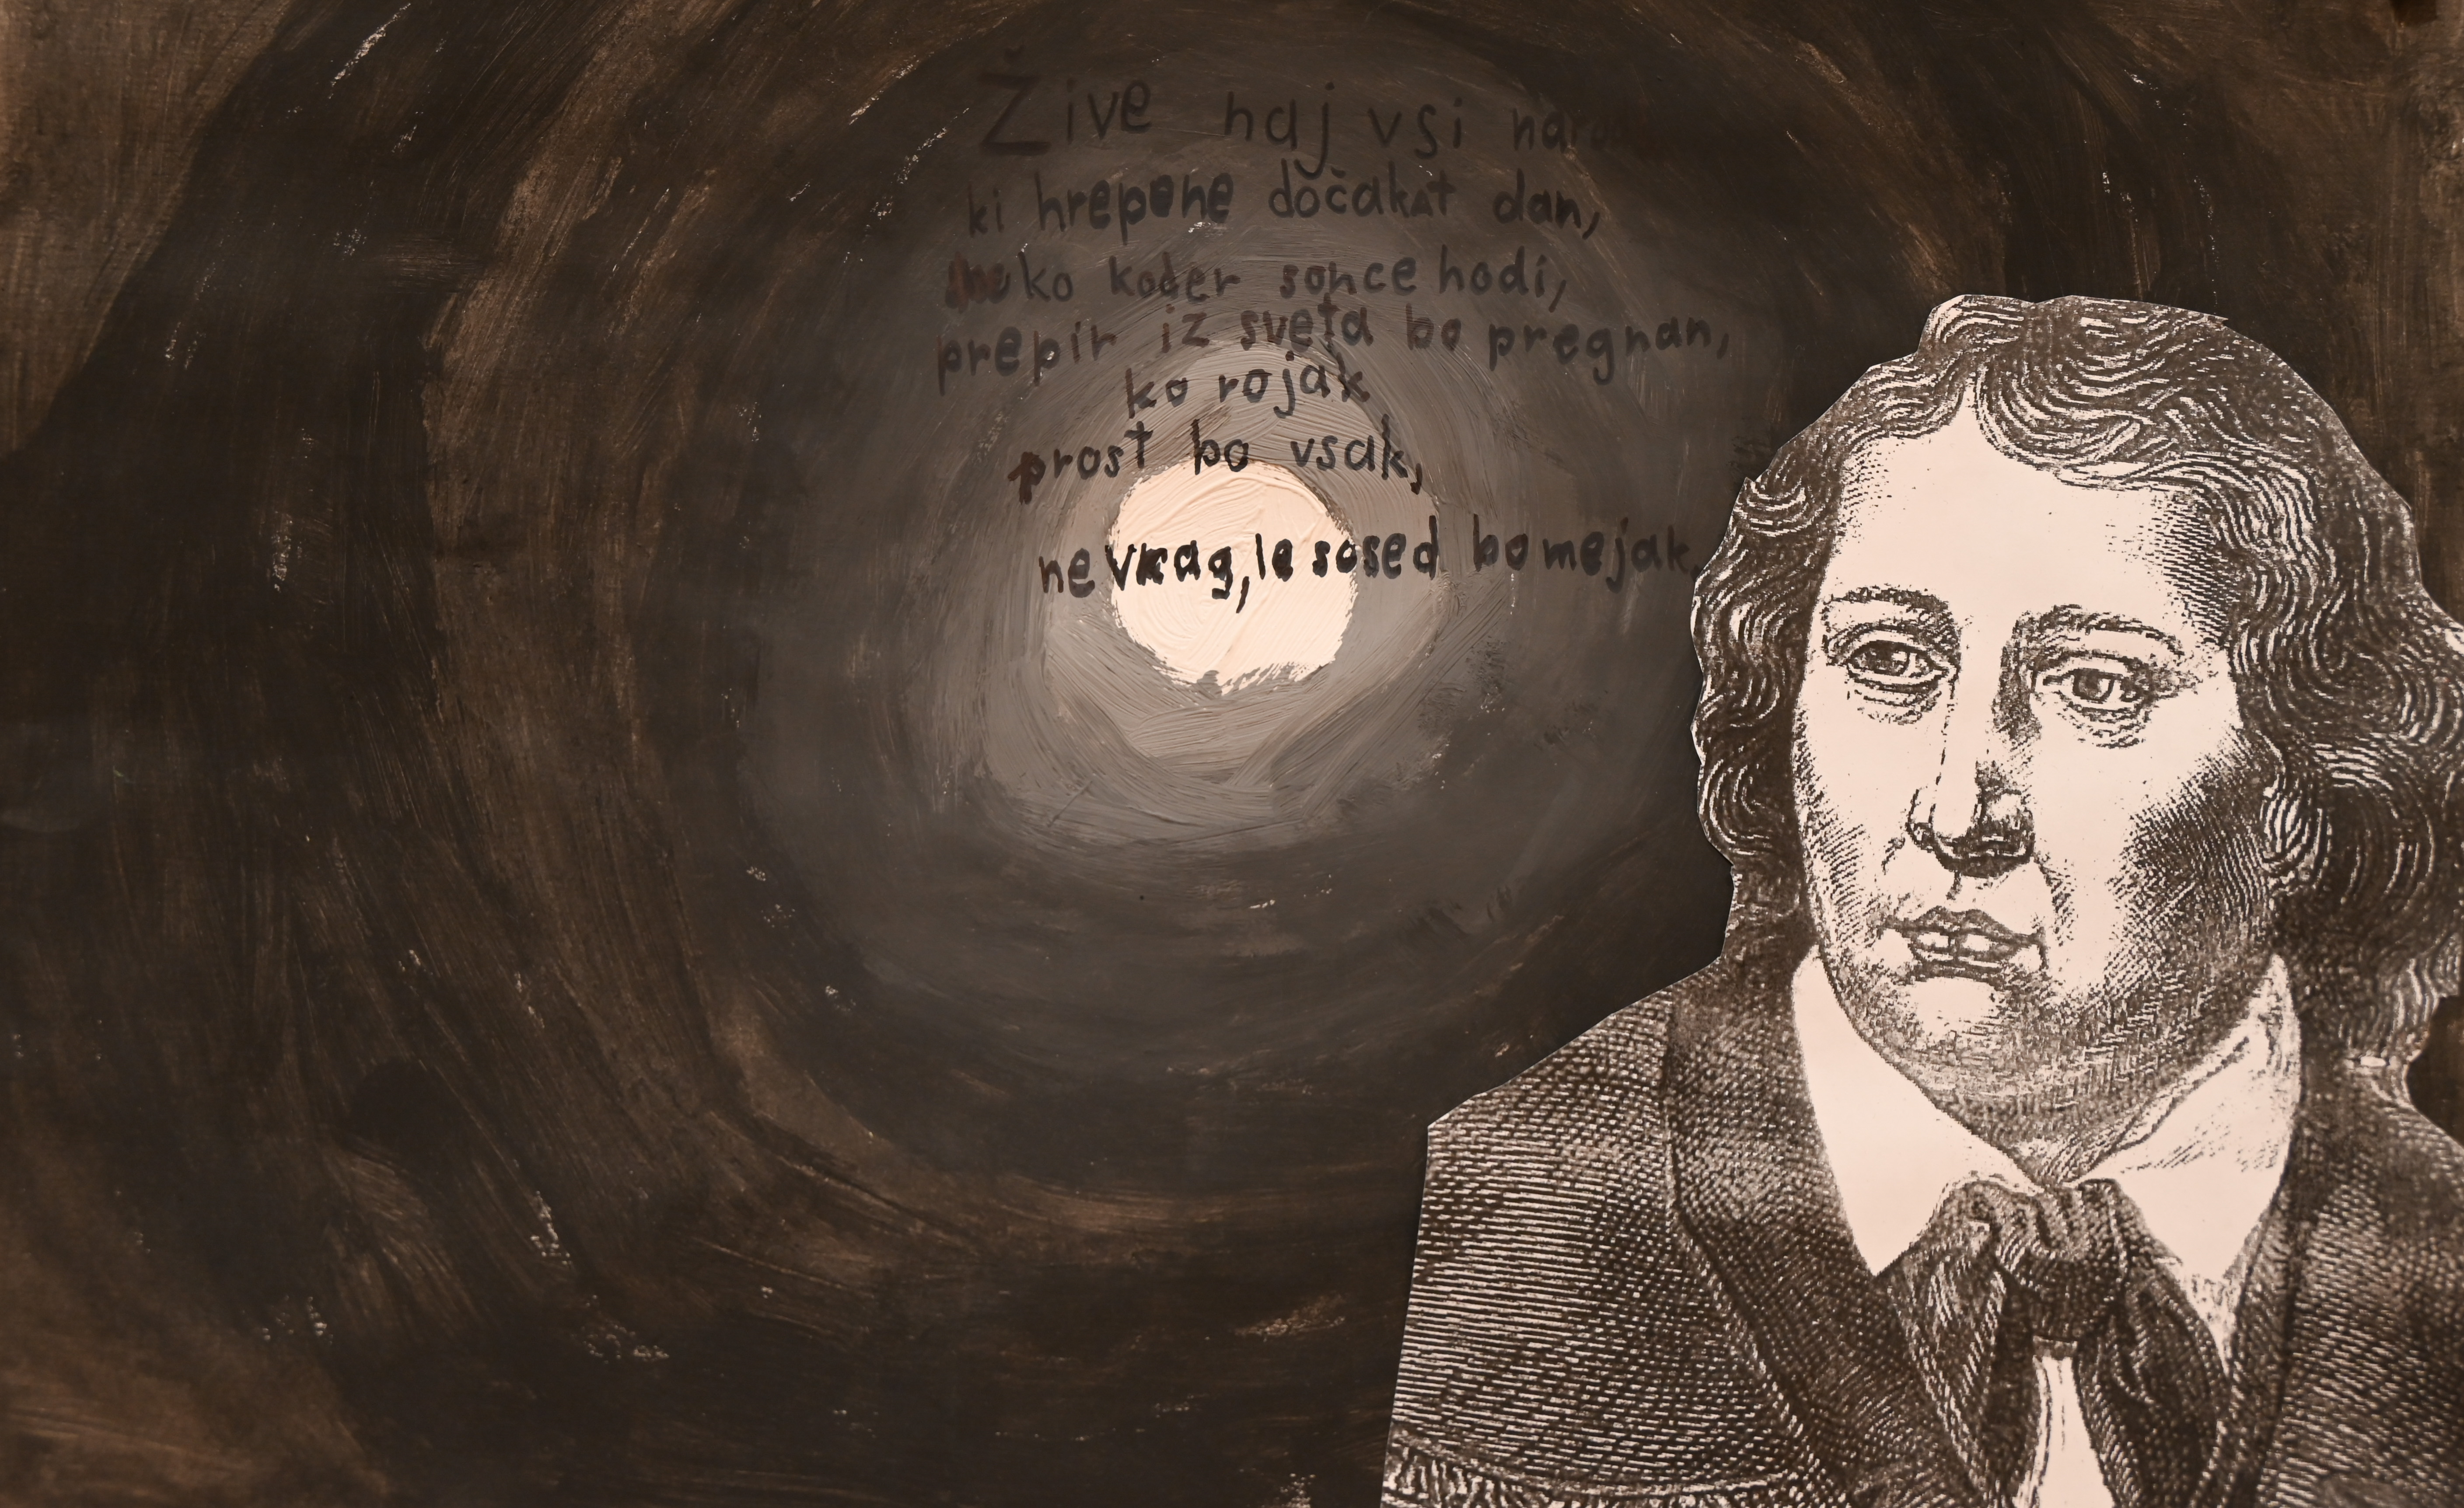 Žive naj vsi
ki hrepene dočakat dan,
ko koder sonce hodi,
prepir iz sveta bo pregnan,
ko rojak
prost bo vsak,
ne vrag, le sosed bo mejak.